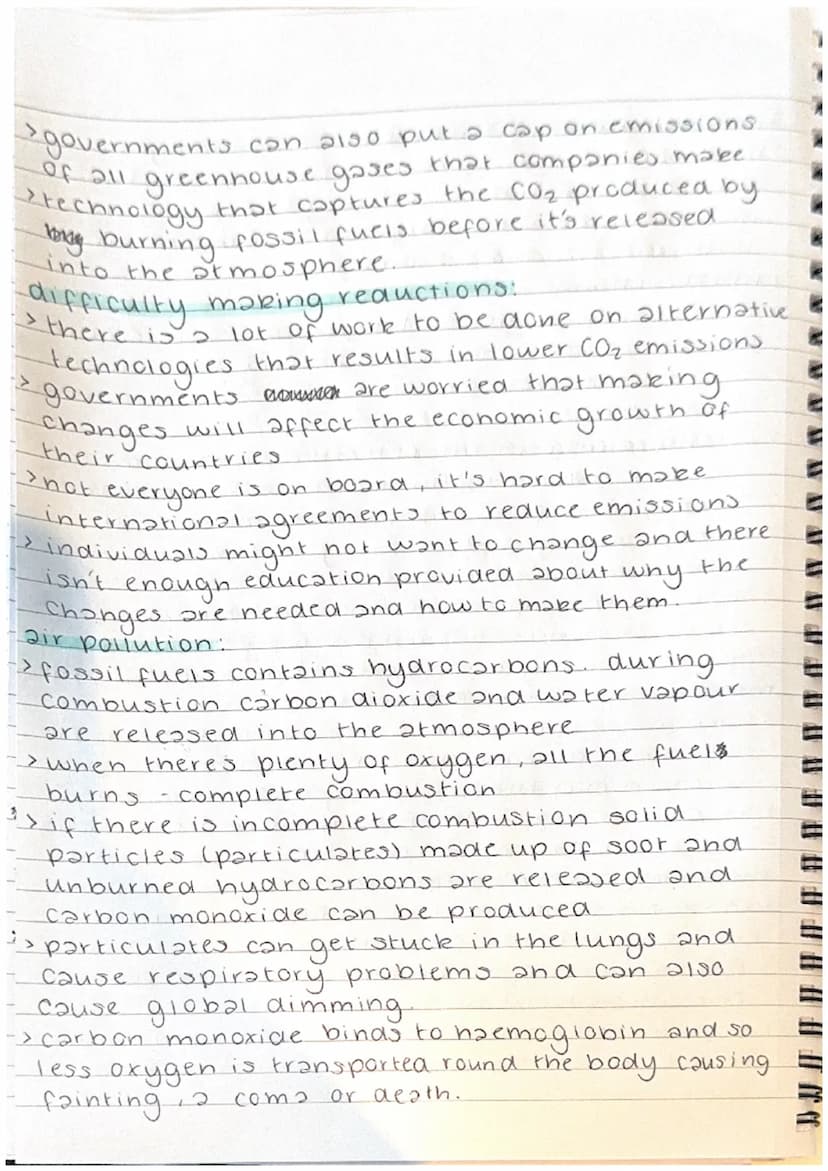 > governments can also put a cap on emissions
of all greenhouse gases that companies make
> technology that captures the CO₂ produced by
burning fossil fuels before it's released
into the atmosphere.
difficulty making reductions:
> there is a lot of work to be done on alternative
technologies that results in lower CO₂ emissions
> governments are worried that making
changes will affect the economic growth of
their countries
> not everyone is on board, it's hard to make
international agreements to reduce emissions
> individuals might not want to change and there
isn't enough education provided about why the
changes are needed and how to make them.
air pollution:
> fossil fuels contains hydrocarbons. during
combustion carbon dioxide and water vapour
are released into the atmosphere
> when theres plenty of oxygen, all the fuel
burns - complete combustion
> if there is incomplete combustion solid
particles (particulates) made up of soot and
unburned hydrocarbons are released and
carbon monoxide can be produced
> particulates can get stuck in the lungs and
cause respiratory problems and can also
cause global dimming.
> carbon monoxide binds to haemoglobin and so
less oxygen is transported round the body causing
fainting, a coma or death.